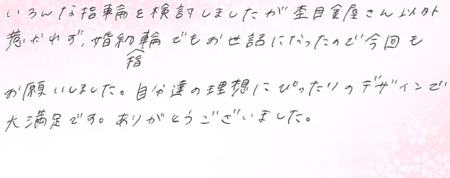 いろんな指輪を検討しましたが杢目金屋さん以外
惹かれず、婚約指輪でもお世話になったので今回も
お願いしました。自分達の理想にぴったりのデザインで
大満足です。ありがとうございました。